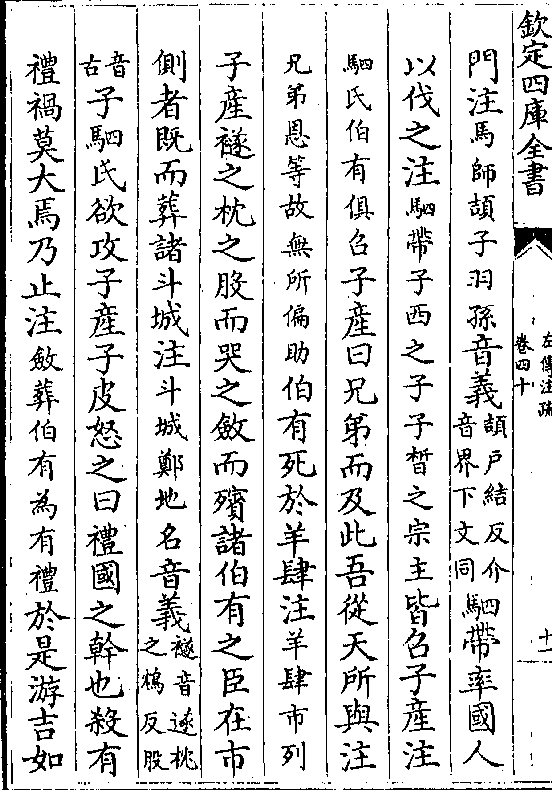 欽定四庫全書
左傳注疏
卷四十
十一
門注馬師頡子羽孫音義頡戶結反介音界下文同駟帶率國人
以伐之注駟帶子西之子子晳之宗主皆召子產注
駟氏伯有俱召子產曰兄弟而及此吾從天所與注
兄弟恩等故無所偏助伯有死於羊肆注羊肆市列
子產襚之枕之股而哭之斂而殯諸伯有之臣在市
側者既而葬諸斗城注斗城鄭地名音義襚音遂枕之鴆反股
音古子駟氏欲攻子產子皮怒之曰禮國之幹也殺有
禮禍莫大焉乃止注斂葬伯有為有禮於是游吉如